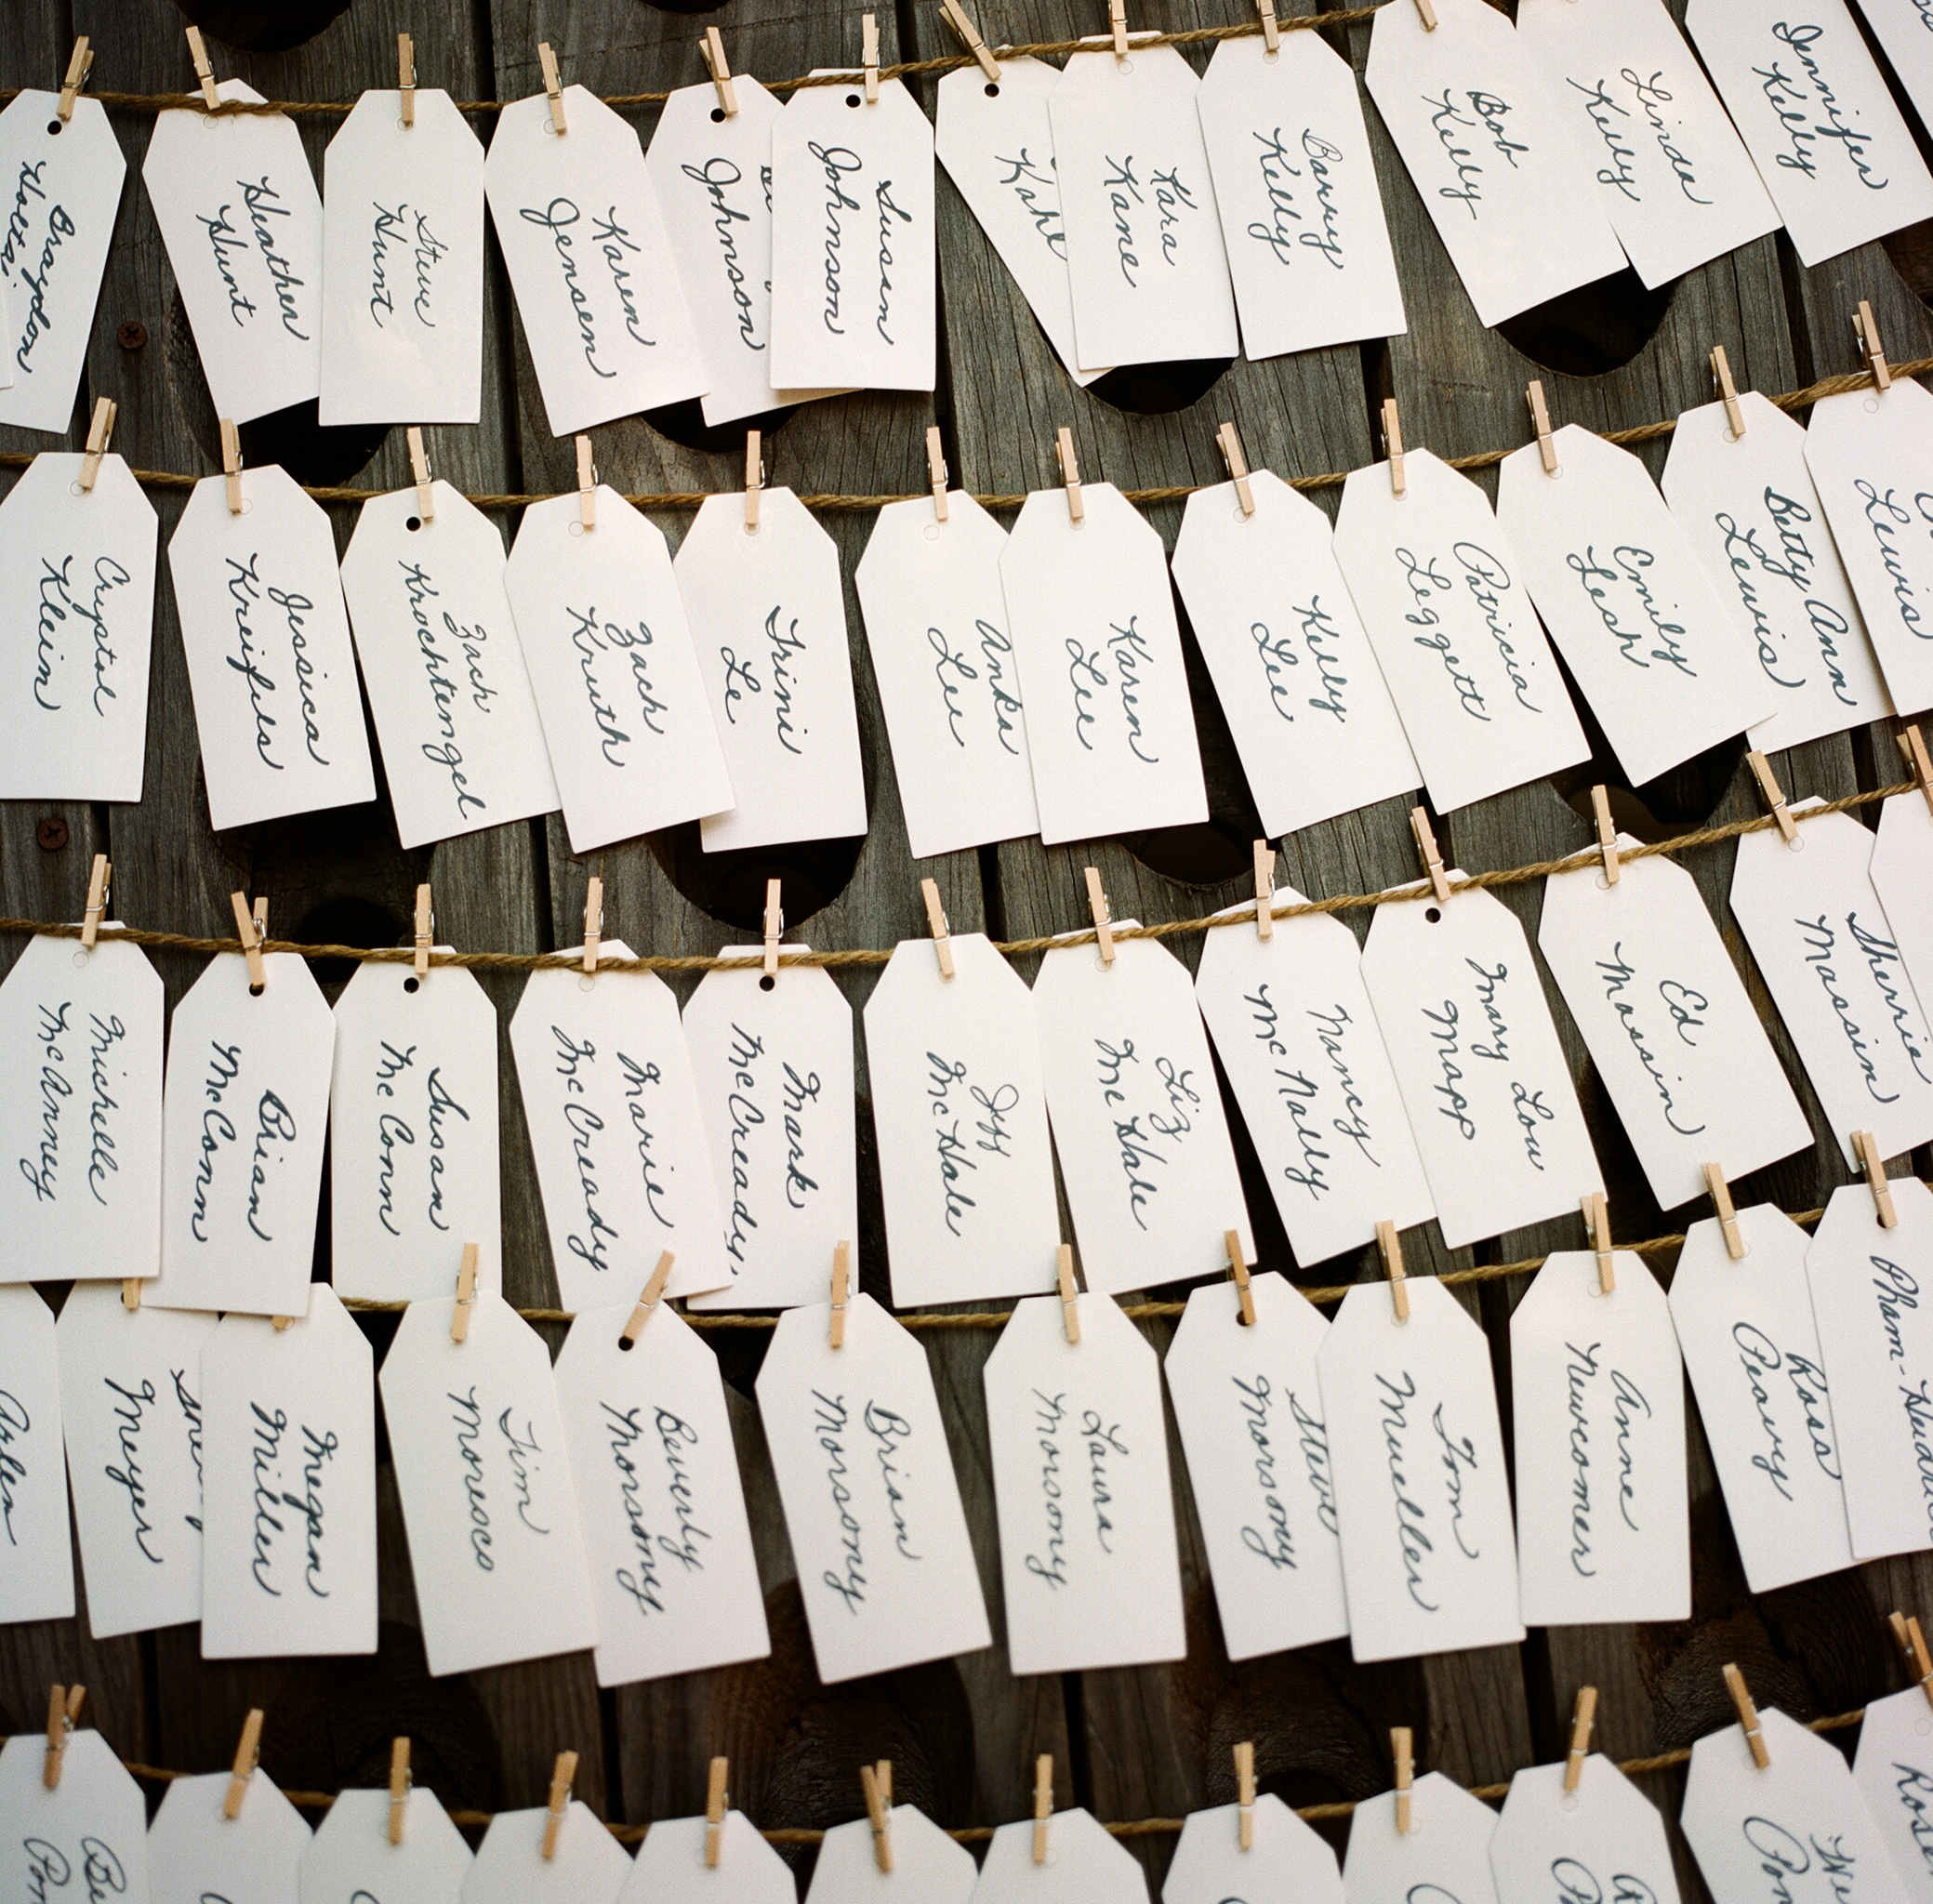 Brayden
Heather
Hunt
Steve
Hunt
Karen
Jensen
Johnson
Susan
Johnson
Kahl
Kara
Kane
Barry
Kelly
Bob
Kelly
Linda
Kelly
Jennifer
Kelly
Crystal
Klein
Jessica
Kreifels
Zach
Krochtengel
Zach
Kruth
Trini
Le
Anka
Lee
Karen
Lee
Kelly
Lee
Patricia
Leggett
Emily
Lesh
Betty Ann
Lewis
Lewis
Michelle
McAnney
Brian
McConn
Susan
McConn
Marie
McCready
Mark
McCready
Jeff
McHale
Liz
McHale
Nancy
McNally
Mary Lou
Mapp
Ed
Massin
Sherrie
Massin
Meyer
Megan
Miller
Tim
Moresco
Beverly
Morsomy
Brian
Morsomy
Laura
Morsomy
Steve
Morsomy
Tom
Mueller
Anne
Newcomer
Ross
Peavy